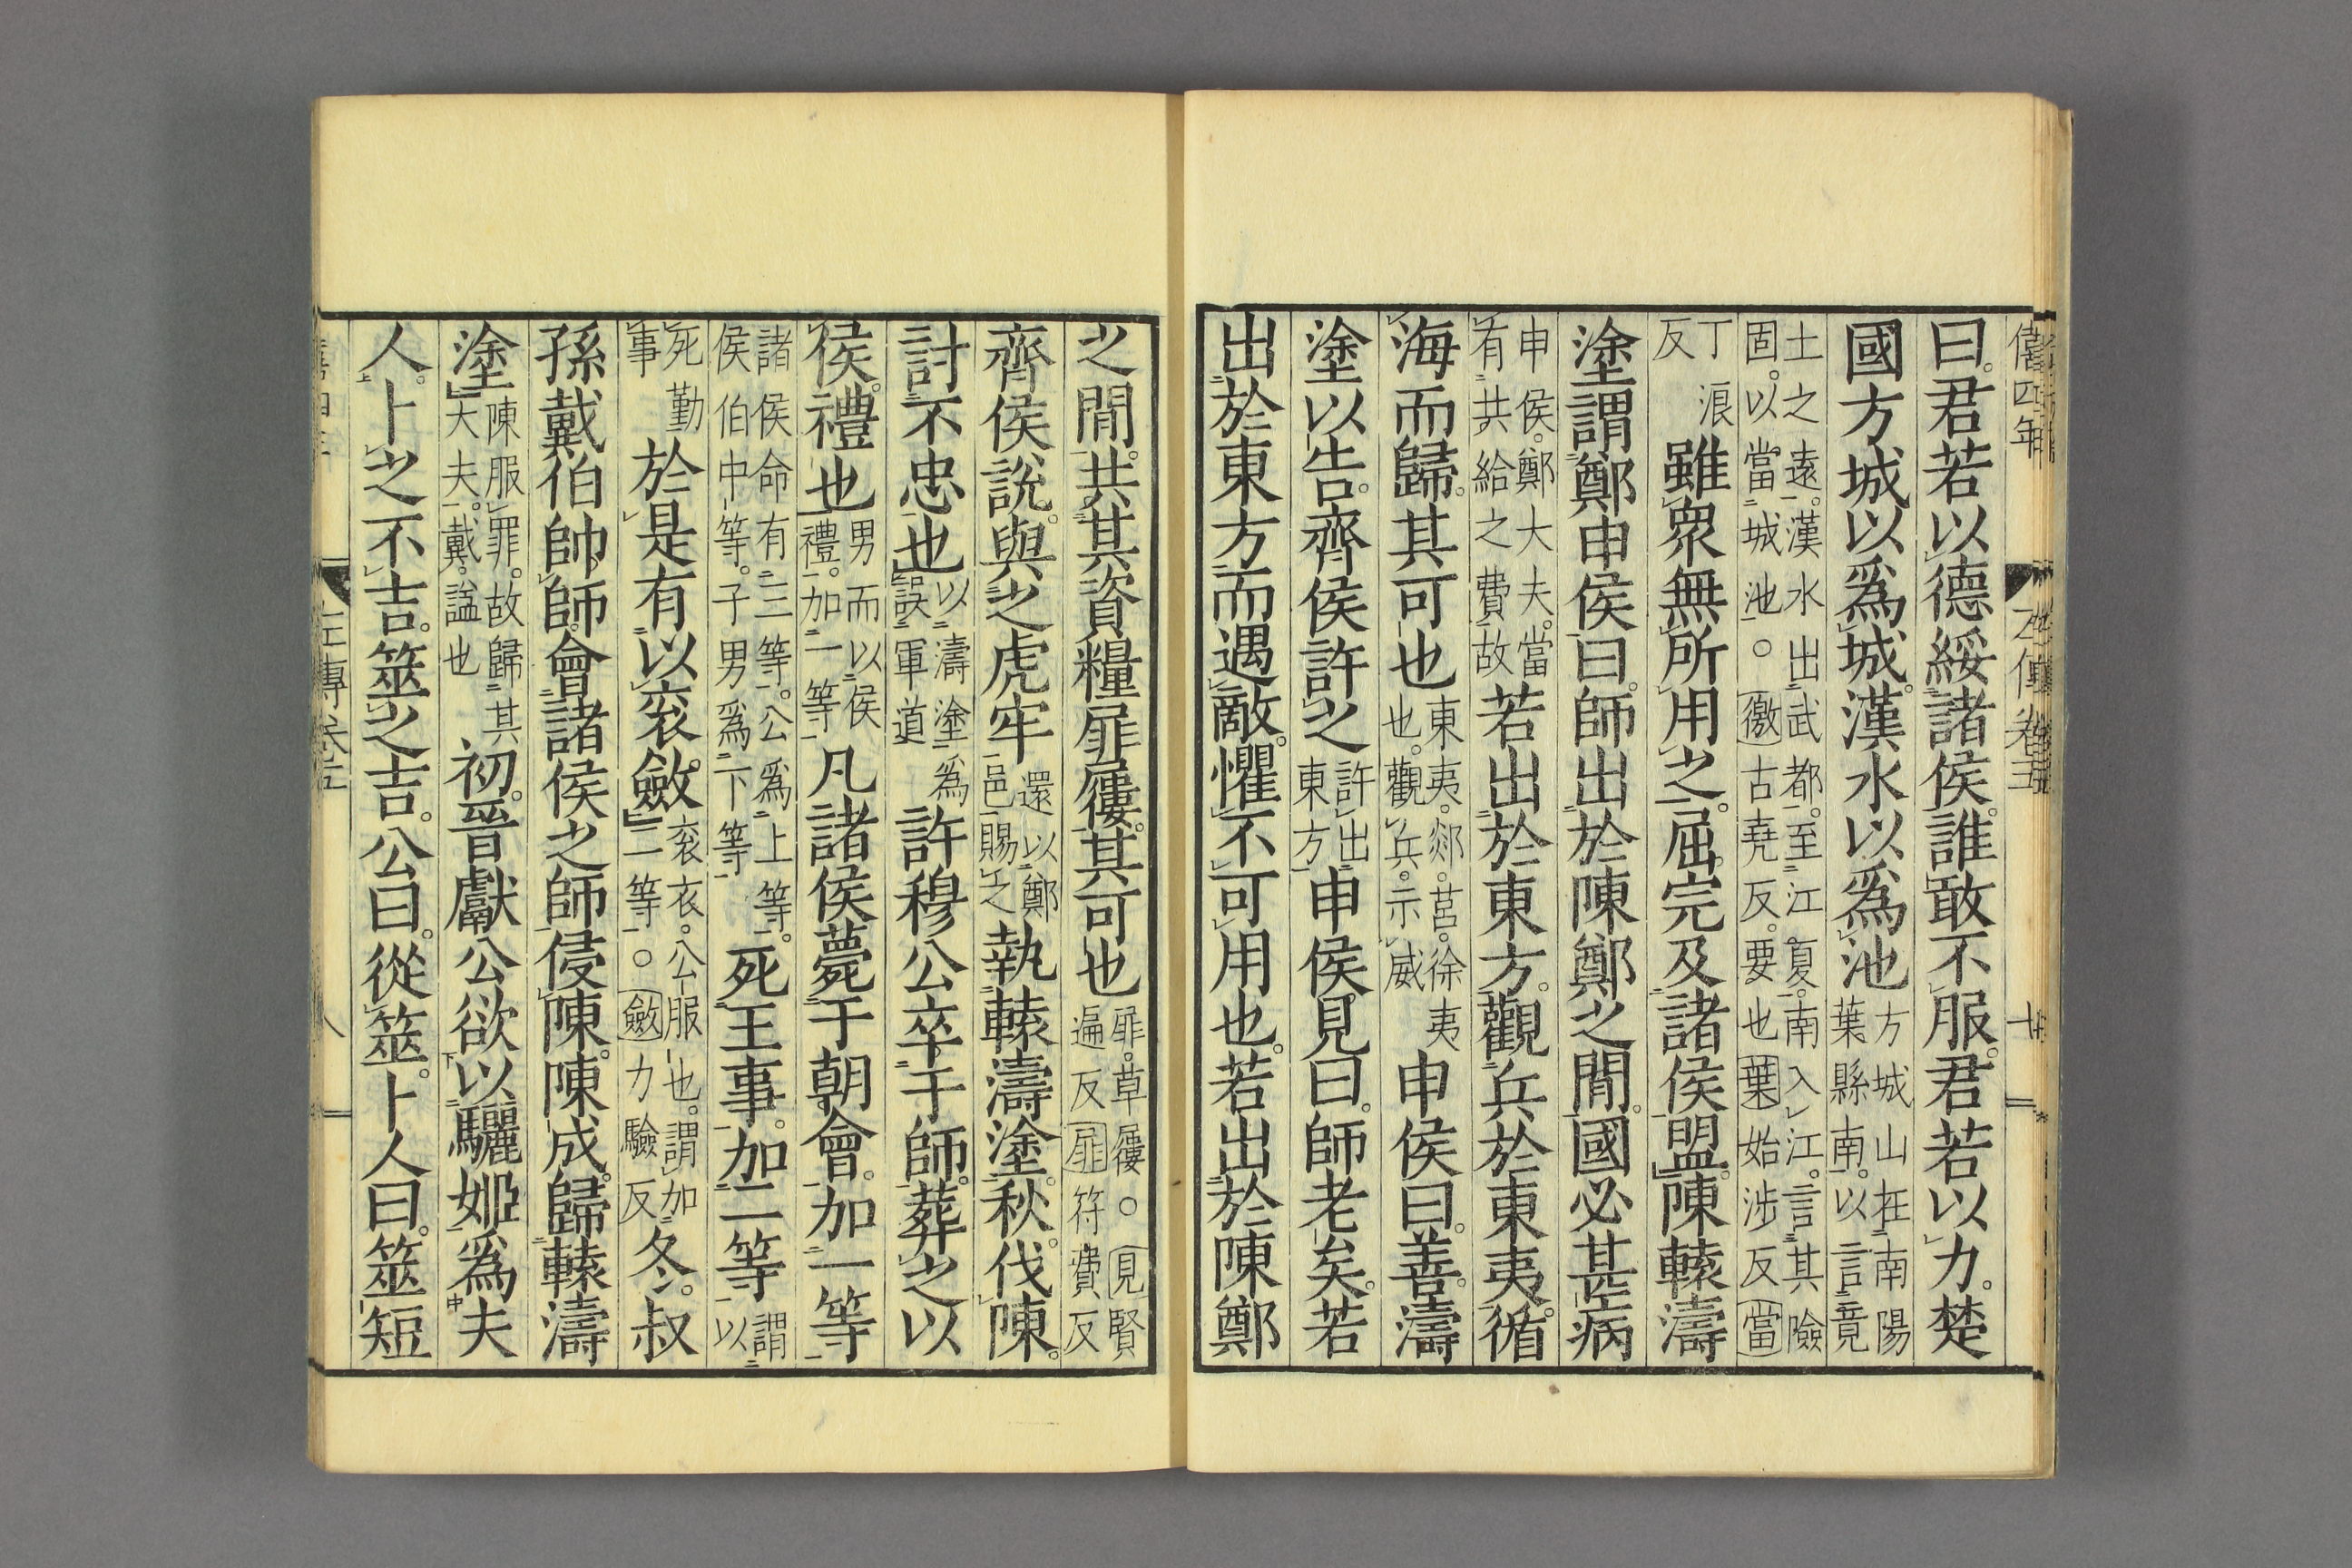 僖四年 左傳卷五 十
曰。君若以德綏諸侯。誰敢不服。君若以力。楚
國方城以爲城。漢水以爲池方城山在南陽葉縣南。以言竟
土之遠。漢水出武都。至江夏。南入江。言其險固。以當城池。○徼古堯反。要也葉始涉反當
丁浪反雖衆無所用之。屈完及諸侯盟。陳轅濤
塗謂鄭申侯曰。師出於陳鄭之閒。國必甚病
申侯。鄭大夫。當有共給之費故若出於東方。觀兵於東夷。循
海而歸。其可也東夷。郯。莒。徐夷也。觀兵。示威申侯曰。善。濤
塗以告。齊侯許之許出東方申侯見曰。師老矣。若
出於東方而遇敵。懼不可用也。若出於陳鄭
之閒。共其資糧屝屨。其可也屝。草屨。○見賢遍反屝符費反
齊侯說。與之虎牢還以鄭邑賜之執轅濤塗。秋。伐陳。
討不忠也以濤塗爲誤軍道許穆公卒于師。葬之以
侯。禮也男而以侯禮。加一等凡諸侯薨于朝會。加一等
諸侯命有三等。公爲上等。侯伯中等。子男爲下等死王事。加二等謂以
死勤事於是有以衮斂衮衣。公服也。謂加二等。○斂力驗反冬。叔
孫戴伯帥師。會諸侯之師侵陳。陳成。歸轅濤
塗陳服罪。故歸其大夫。戴。謚也初。晉獻公欲以驪姬爲夫
人。卜之不吉。筮之吉。公曰。從筮。卜人曰。筮短